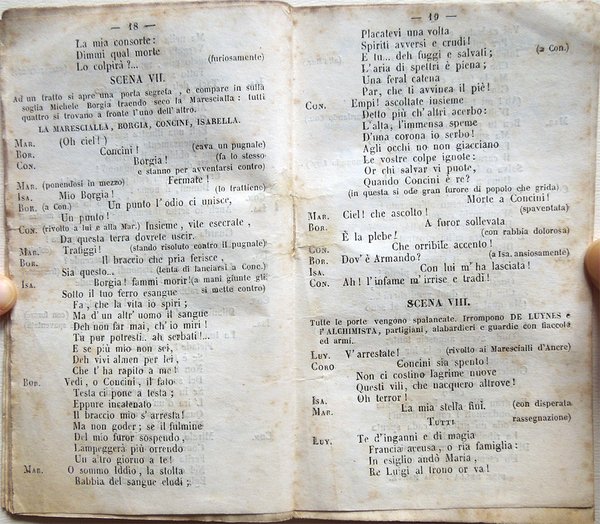 — 18 —
La mia consorte:
Dimmi qual morte
Lo colpirà?... (furiosamente)
SCENA VII.
Ad un tratto si apre una porta segreta, e compare in sulla
soglia Michele Borgia traendo seco la Marescialla: tutti
quattro si trovano a fronte l'uno dell'altro.
LA MARESCIALLA, BORGIA, CONCINI, ISABELLA.
MAR. (Oh ciel!)
BOR. Concini! (cava un pugnale)
CON. Borgia! (fa lo stesso
e stanno per avventarsi contro)
MAR. (ponendosi in mezzo) Fermate!
ISA. Mio Borgia! (lo trattiene)
BOR. (a Con.) Un punto l'odio ci unisce,
Un punto!
CON. (rivolto a lui e alla Mar.) Insieme, vite esecrate,
Da questa terra dovrete uscir.
MAR. Trafiggi! (stando risoluto contro il pugnale)
BOR. Il braccio che pria ferisce,
Sia questo.. (tenta di lanciarsi a Conc.)
ISA. Borgia! fammi morir! (a mani giunte gli
si mette contro)
Sotto il tuo ferro esangue
Fa, che la vita io spiri;
Ma d'un altr'uomo il sangue
Deh non far mai, ch'io miri!
Tu pur potresti.. ah serbati!...
E se più mio non sei,
Deh vivi almen per lei,
Che t'ha rapito a me!
BOR. Vedi, o Concini, il fato
Testa ci pone a testa;
Eppure incatenato
Il braccio mio s'arresta!
Ma non goder; se il fulmine
Del mio furor sospendo,
Lampeggerà più orrendo
Un altro giorno a te!
MAR. O sommo Iddio, la stolta
Rabbia del sangue eludi;
— 19 —
Placatevi una volta
Spiriti avversi e crudi!
E tu... deh fuggi e salvati; (a Con.)
L'aria di spettri è piena;
Una feral catena
Par, che ti avvinca il piè!
CON. Empi! ascoltate insieme
Detto più ch'altri acerbo:
L'alta, l'immensa speme
D'una corona io serbo!
Agli occhi no non giacciano
Le vostre colpe ignote:
Or chi salvar vi puote,
Quando Concini è re?
(in questa si ode gran furore di popolo che grida)
Morte a Concini!
MAR. Ciel! che ascolto! (spaventata)
BOR. A furor sollevata
È la plebe! (con rabbia dolorosa)
CON. Che orribile accento!
BOR. Dov'è Armando? (a Isa. ansiosamente)
ISA. Con lui m'ha lasciata!
CON. Ah! l'infame m'irrise e tradì!
SCENA VIII.
Tutte le porte vengono spalancate. Irrompono DE LUYNES e
l'ALCHIMISTA, partigiani, alabardieri e guardie con fiaccola
ed armi.
LUY. V'arrestate! (rivolto ai Marescialli d'Ancre)
CORO Concini sia spento!
Non ci costino lagrime nuove
Questi vili, che nacquero altrove!
ISA. Oh terror!
MAR. La mia stella finì. (con disperata
rassegnazione)
TUTTI
LUY. Te d'inganni e di magia
Francia accusa, o ria famiglia:
In esiglio andò Maria,
Re Luigi al trono or va!